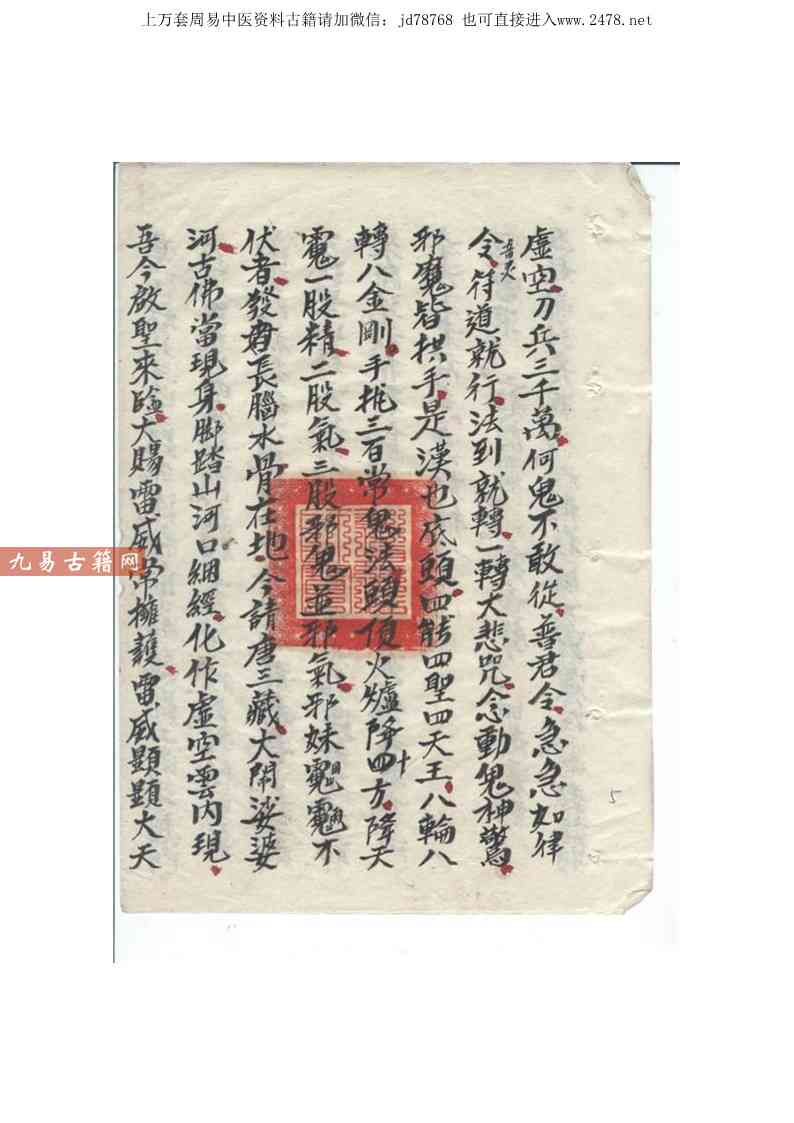 上万套周易中医资料古籍请加微信：jd78768 也可直接进入www.2478.net
虛空刀兵三千萬何鬼不敢從普君令急急如律
令符道就行法到就轉一轉大悲咒念動鬼神驚
邪魔皆拱手是漢也底頭四能四聖四天王八輪八
轉八金剛手托三百常鬼法頭頂火爐降四方降天
一股精二股氣三股邪鬼並邪氣邪妹不
伏者發長腦水骨在地今請唐三藏大鬧婆婆
河古佛當現身腳踏山河口綑經化作虛空雲內現
吾今啟聖來臨大賜雷威常擁護雷威顯顯大天
5
九易古籍网